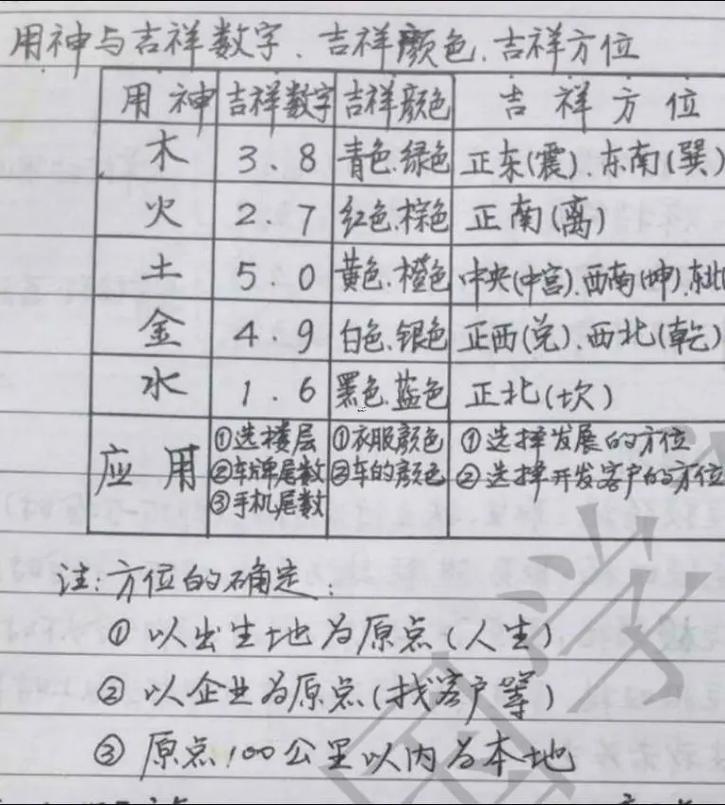 用神与吉祥数字、吉祥颜色、吉祥方位
用神 吉祥数字 吉祥颜色 吉祥方位
木 3.8 青色.绿色 正东(震).东南(巽)
火 2.7 红色.棕色 正南(离)
土 5 0 黄色.橙色 中央(中宫).西南(坤).东北
金 4.9 白色.银色 正西(兑).西北(乾)
水 1.6 黑色.蓝色 正北(坎)
应用 ①选楼层 ①衣服颜色 ①选择发展的方位
②车牌尾数 ②车的颜色 ②选择开发客户的方位
③手机尾数
注:方位的确定:
①以出生地为原点(人生)
②以企业为原点(找客户等)
③原点100公里以内为本地
国学